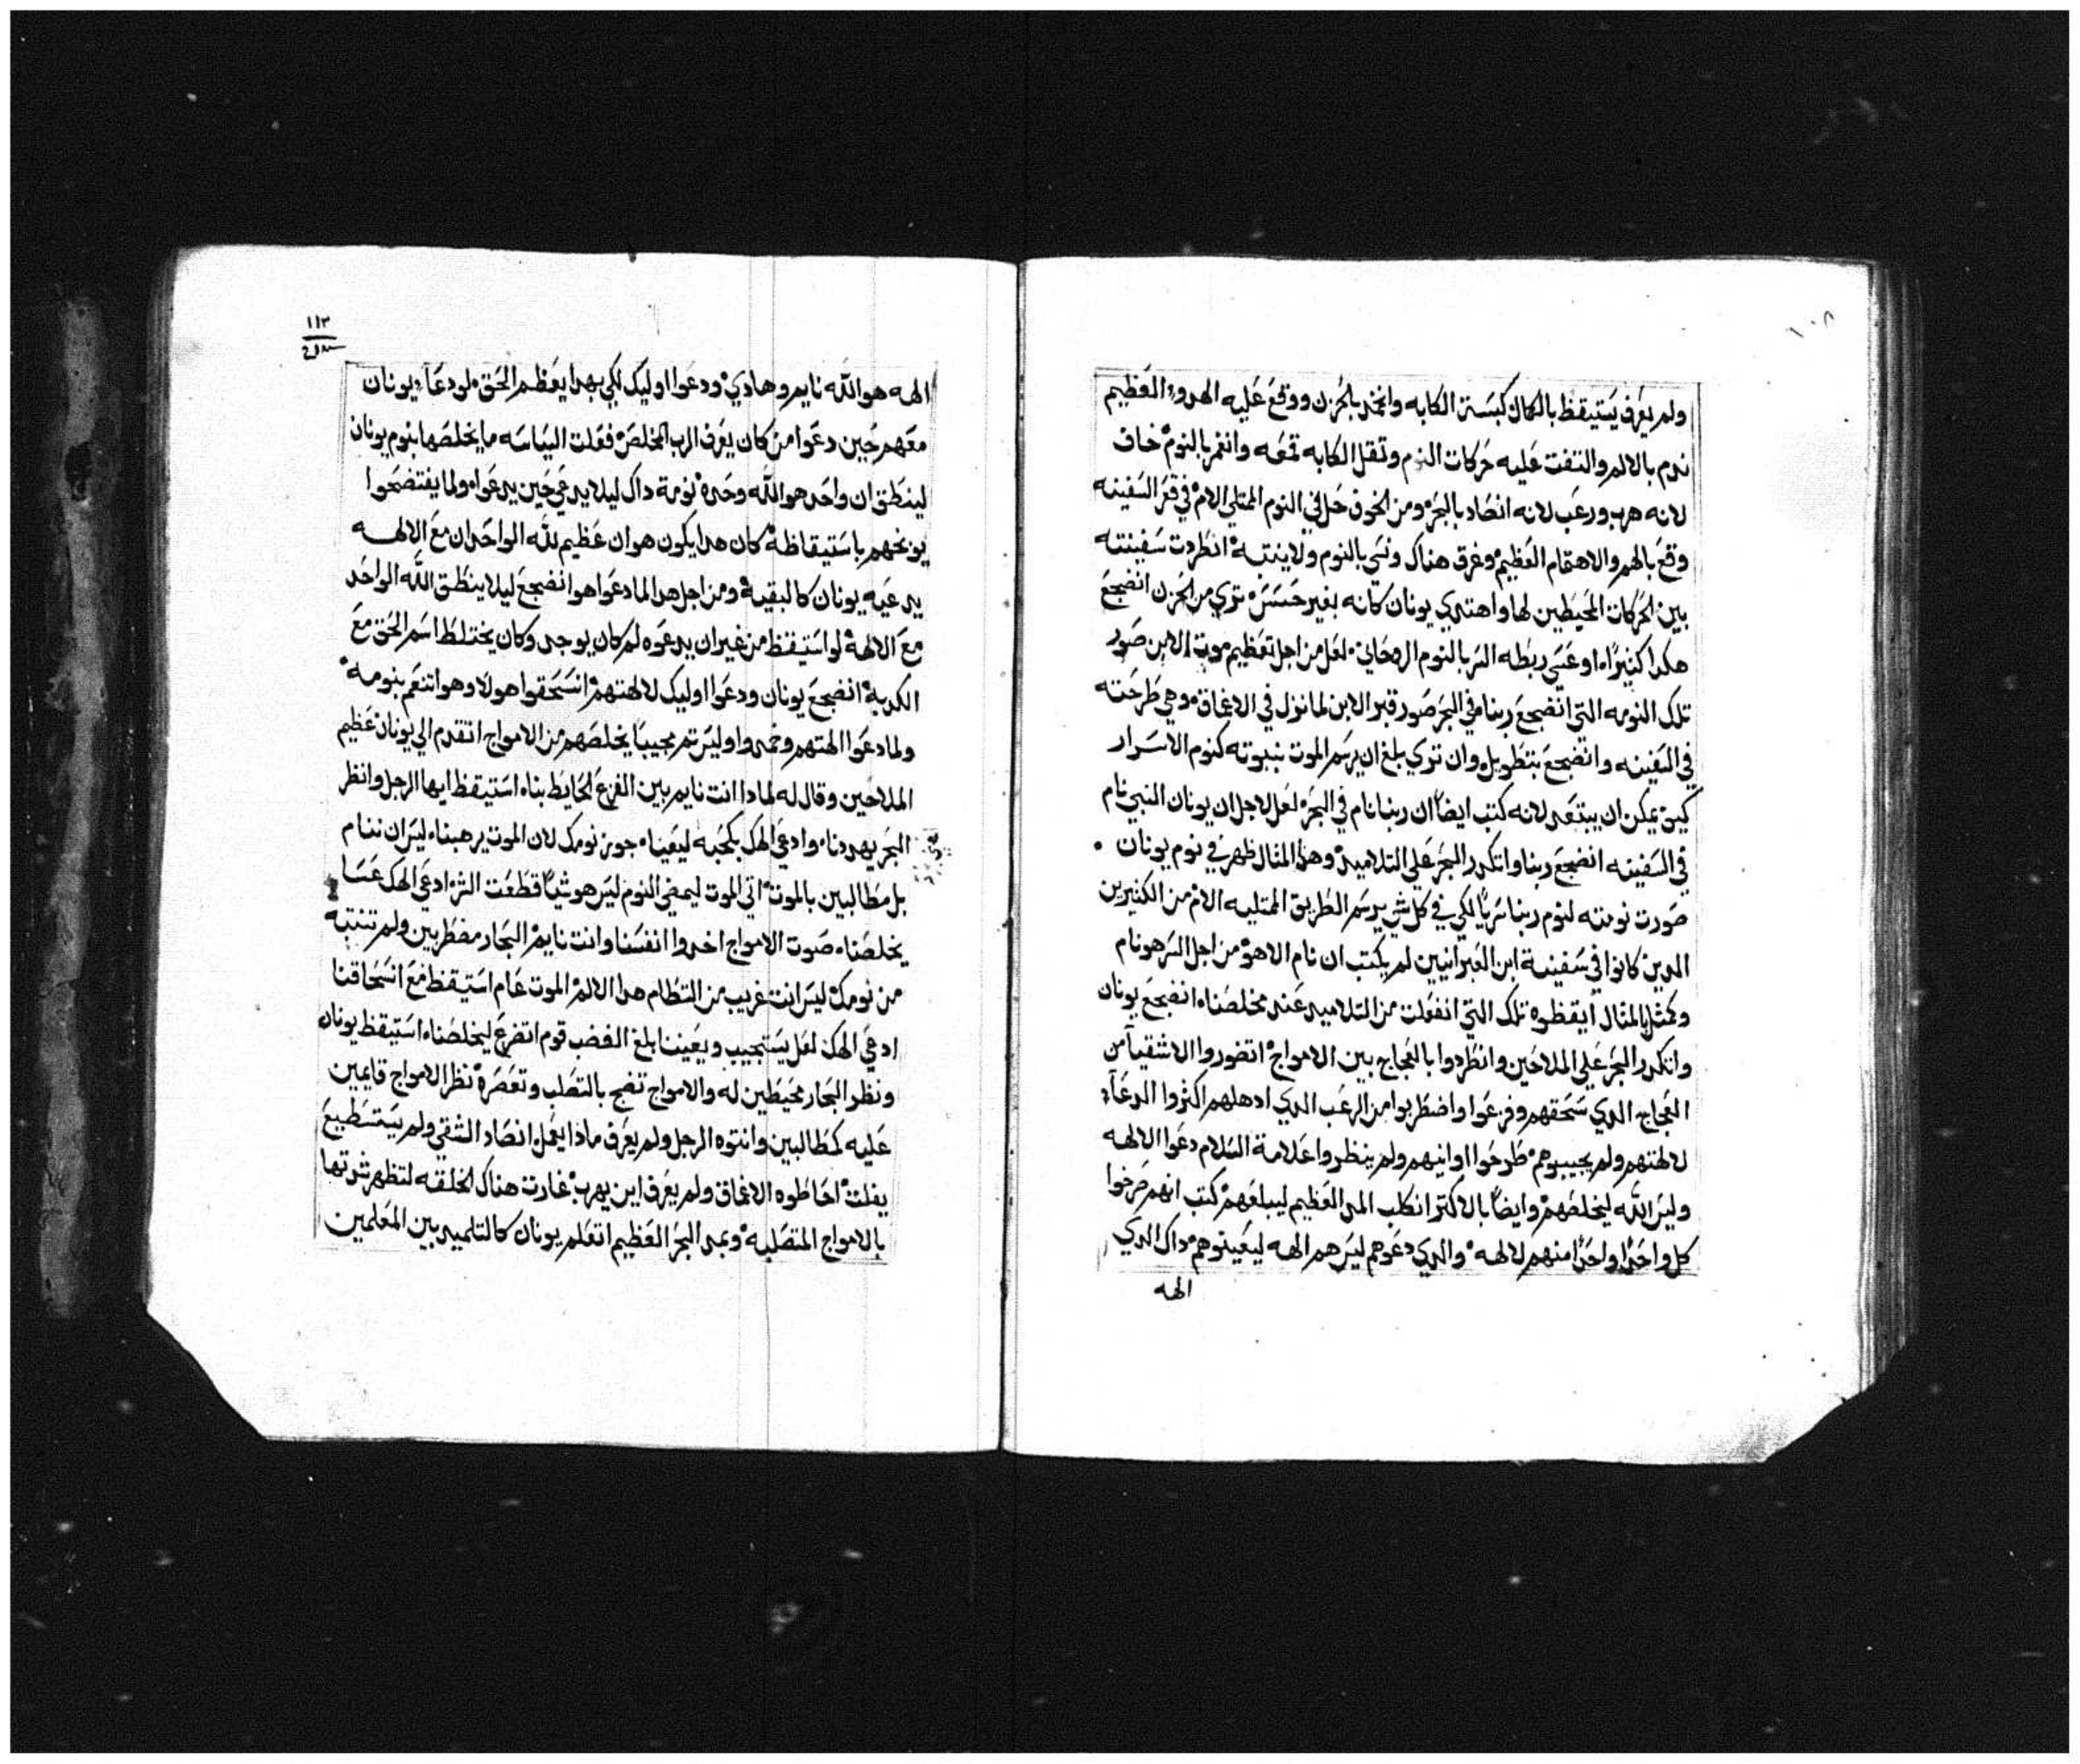 ١٠٨
ولم يعرف يستيقظ بالكمال كبسته الكابه وانخمد بالحزن ووقع عليه الهدوء العظيم
ندم بالالم والتفت عليه حركات الندم وتقل الكابه قمعه وانغمر بالنوم خاف
لانه هرب ورعب لانه انصاد بالبحر ومن الخوف حل في النوم الممتلي الام في قعر السفينه
وقع بالهم والاهتمام العظيم وغرق هناك ونسي بالنوم ولا ينتبه انطردت سفينته
بين الحركات المحيطين لها واهتدي يونان كانه بغير حسس تري من الحزن انضجع
هكدا كتيرًا او عسي ربطه السر بالنوم الروحاني لعل من اجل تعظيم موت الابن صور
تلك النومه التي انضجع ربنا في البحر صور قبر الابن لما نزل في الاعماق وهي طرحته
في السفينه وانضجع بتطويل وان تري بلغ ان يرسم الموت بنبوته كنوم الاسرار
كيف يمكن ان يبتعد لانه كتب ايضًا ان ربنا نام في البحر لعل لاجل ان يونان النبي نام
في السفينه انضجع ربنا واتكدر البحر علي التلاميد وهدا المتال ظهر في نوم يونان
صورت نومته لنوم ربنا سريًا لكي في كل شي يرسم الطريق الممتليه الام من الكتيرين
الدين كانوا في سفينة ابن العبرانيين لم يكتب ان نام الا هو من اجل السر هو نام
وكمثل المتال ايقظوه تلك التي انفعلت من التلاميد عند مخلصنا انضجع يونان
واتكدر البحر علي الملاحين وانطردوا بالعجاج بين الامواج اتضوروا الاشقيآ من
العجاج الدي سحقهم وفزعوا واضطربوا من الرعب الدي ادهلهم اكثروا الدعآء
لالهتهم ولم يجيبوهم طرحوا اوانيهم ولم ينظروا علامة السلام دعوا الالهه
وليس الله ليخلصهم وايضًا بالاكتر انكلب المد العظيم ليبلعهم كتب انهم صرخوا
كل واحدًا واحدًا منهم لالهه والدي دعوهم ليس هم الهه ليعينوهم داك الدي
الهه
١١٣
الهه هو الله نايم وهادي ودعوا اوليك لكي بهدا يعظم الحق لو دعآء يونان
معهم حين دعوا من كان يعرف الرب المخلص فعلت السياسه ما يخلصها بنوم يونان
لينطق ان واحد هو الله وحده نومة داك ليلا يدعي حين يدعوا ولما يفتضحوا
يوبخهم باستيقاظه كان هدا يكون هوان عظيم لله الواحد ان مع الالهه
يدعيه يونان كالبقيه ومن اجل هدا لما دعوا هو انضجع ليلا ينطق الله الواحد
مع الالهه لو استيقظ من غير ان يدعوه لم كان يوجد وكان يختلط اسم الحق مع
الكدبه انضجع يونان ودعوا اوليك لالهتهم انسحقوا هولاء وهو اتنعم بنومه
ولما دعوا الهتهم وخمدوا وليس تم مجيبًا يخلصهم من الامواج اتقدم الي يونان عظيم
الملاحين وقال له لمادا انت نايم بين الفزع المحايط بنا استيقظ ايها الرجل وانظر
البحر يهددنا وادعي الهك بكحبه ليعينا جوز نومك لان الموت يرهبنا ليس ان ننام
بل مطالبين بالموت اتي الموت ليمضي النوم ليس هو شيًا قطعت الشر ادعي الهك عسا
يخلصنا صوت الامواج اخدوا انفسنا وانت نايم البحار مضطربين ولم تنتبه
من نومك ليس انت غريب من التطام هدا الالم الموت عام استيقظ مع انسحاقنا
ادعي الهك لعل يستجيب ويعيننا بلغ الغضب قوم اتضرع ليخلصنا استيقظ يونان
ونظر البحار محيطين له والامواج تضج بالتصلب وتعصره نظر الامواج قايمين
عليه كمطالبين وانتوه الرجل ولم يعرف ماذا يعمل انصاد الشقي ولم يستطيع
يفلت احاطوه الاعماق ولم يعرف اين يهرب غارت هناك الخلقه لتظهر ثورتها
بالامواج المتصلبه وبمد البحر العظيم اتعلم يونان كالتلميد بين المعلمين